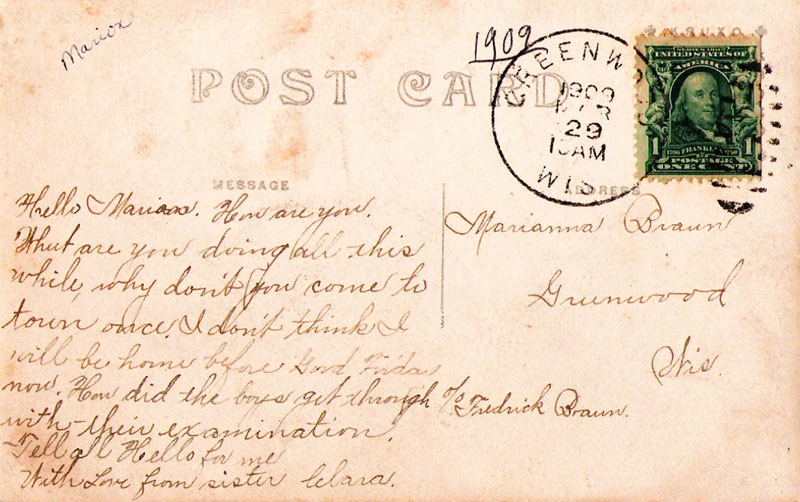 Marion
1909
KRUXO
POST CARD
GREENWOOD
1909
MAR
29
10AM
WIS
SERIES 1902
UNITED STATES OF
AMERICA
1 1706 FRANKLIN 1790 1
POSTAGE
ONE CENT
MESSAGE
ADDRESS
Hello Marion. How are you.
What are you doing all this
while, why don't you come to
town once. I don't think I
will be home before Good Friday
now. How did the boys get through
with their examination.
Tell all Hello for me
With Love from sister Clara.
Marianna Braun
Greenwood
Wis.
c/o Fredrick Braun.